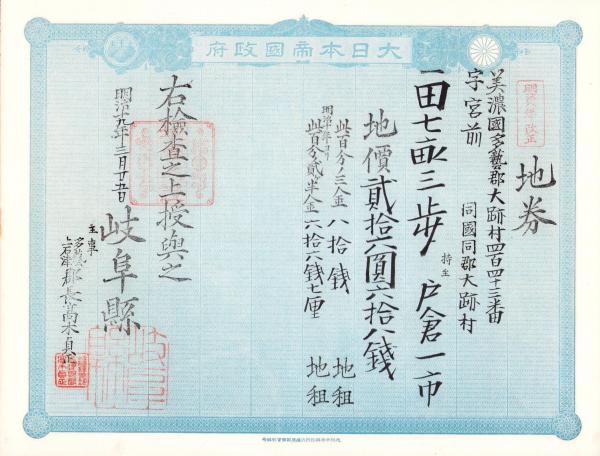 大日本帝國政府
地券
美濃國多藝郡大跡村四百四十三番
字宮前
同國同郡大跡村
一田七畝三歩
持主
戸倉一市
地價貳拾六圓六拾八錢
此百分ノ三金
八拾錢
地租
明治十年ヨリ
此百分ノ貳半金
六拾六錢七厘
地租
右檢査之上授與之
明治十九年三月廿五日
岐阜縣
主事
郡長高木貞正